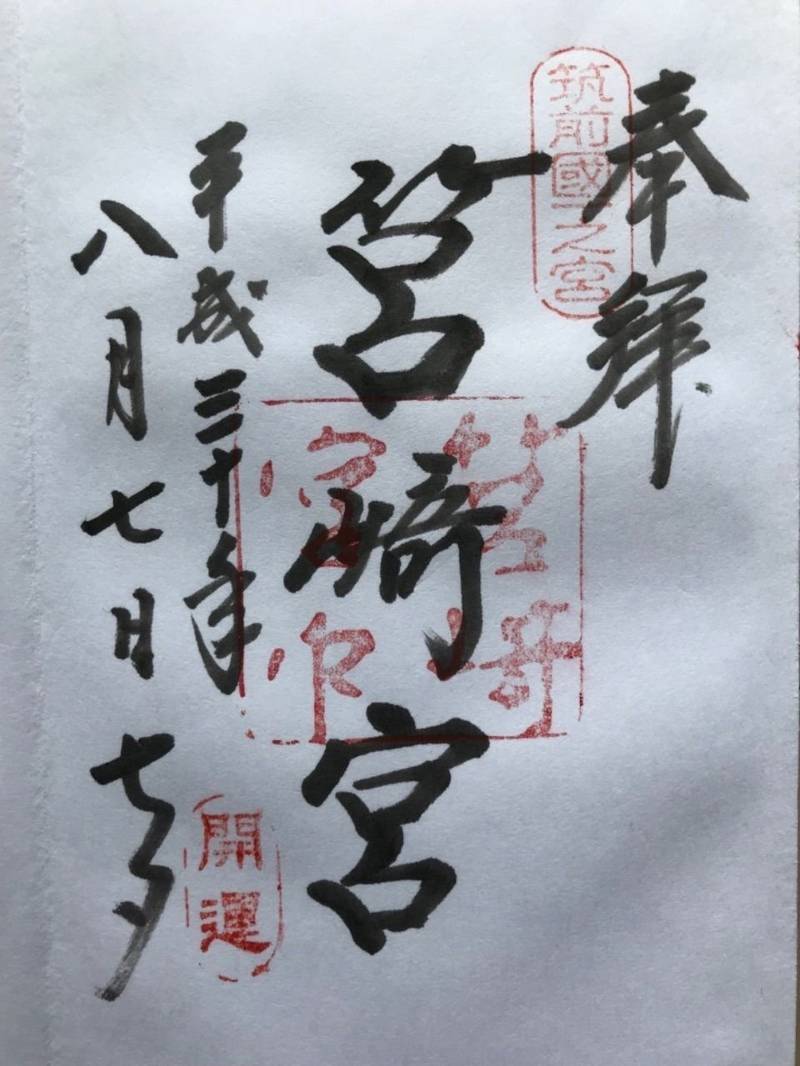 奉拝
筑前國一之宮
筥崎宮
筥崎
宮印
平成三十年
八月七日
七夕
開運